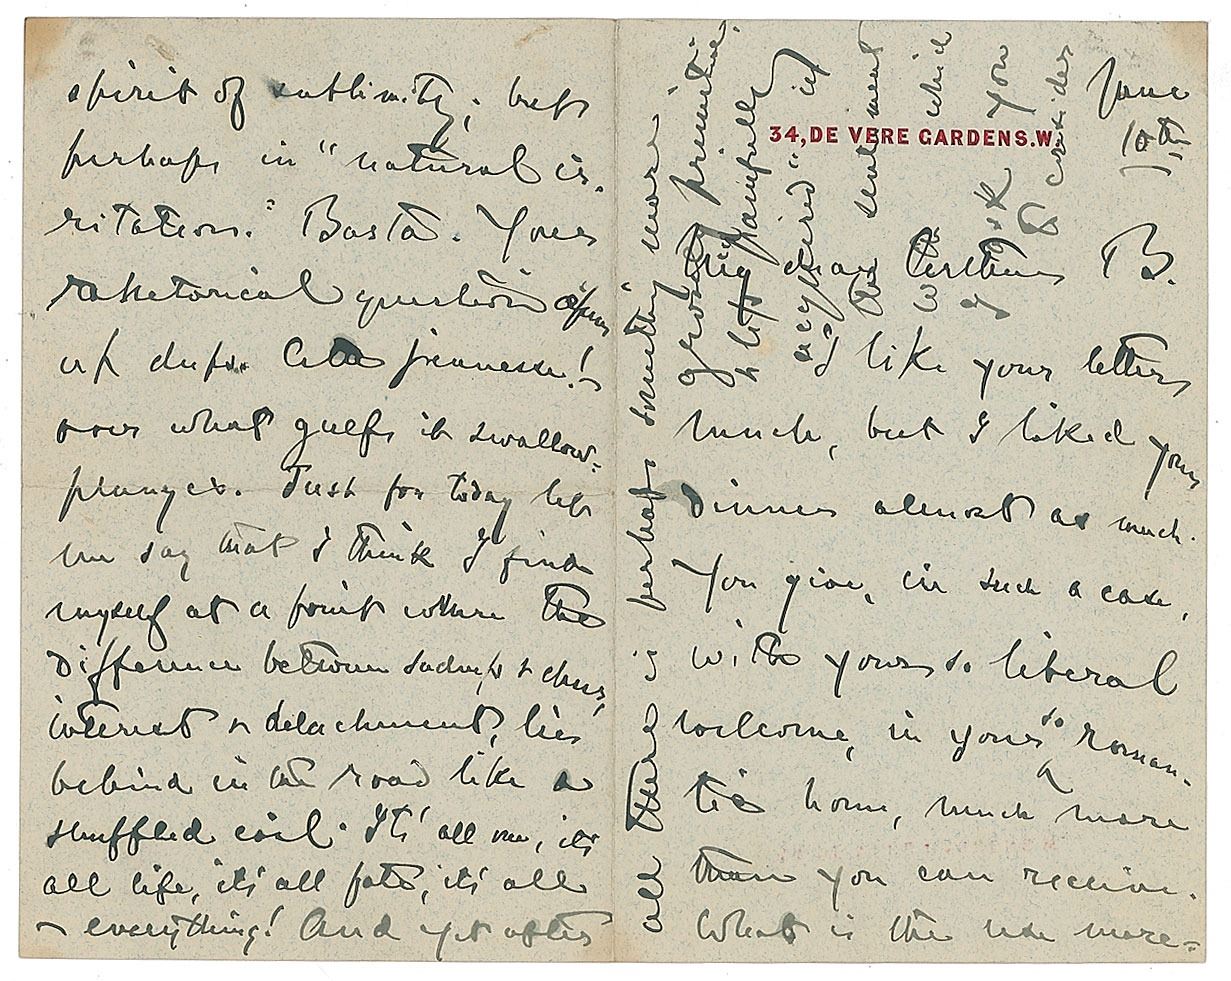 34, DE VERE GARDENS. W.
June
10th
My dear Arthur B.
I like your letters
much, but I liked your
dinner almost as much.
You give, in such a case,
with your so liberal
welcome, in your so roman-
tic home, much more
than you can receive.
What is the use more-
spirit of sublimity; but
perhaps in "natural ir-
ritation." Basta. Your
rhetorical question opens
up deeps. Cette jeunesse!
over what gulfs it swallow-
plunges. Just for today let
me say that I think I find
myself at a point where the
difference between sadness & cheer,
interest & detachment, lies
behind in the road like a
shuffled coil. It's all one, it's
all life, it's all fate, it's all
everything! And yet after
all there is perhaps something more
growing primitive
& less painfully
acquired" in
the sentiment
with which
I ask you
to consider